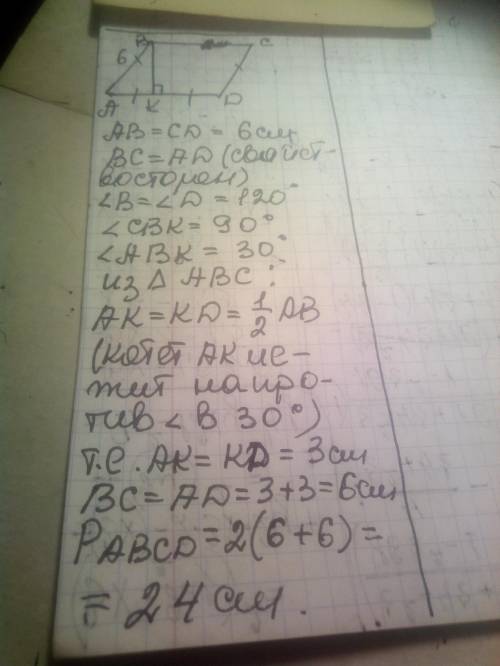 B C
6
A K D
AB = CD = 6 см
BC = AD (свойст-
восторон)
∠B = ∠D = 120°
∠CBK = 90°
∠ABK = 30°
из △ ABC :
AK = KD = 1/2 AB
(катет AK ле-
жит напро-
тив ∠ B 30°)
т.е. AK = KD = 3 см
BC = AD = 3+3 = 6 см
P ABCD = 2(6+6) =
= 24 см.